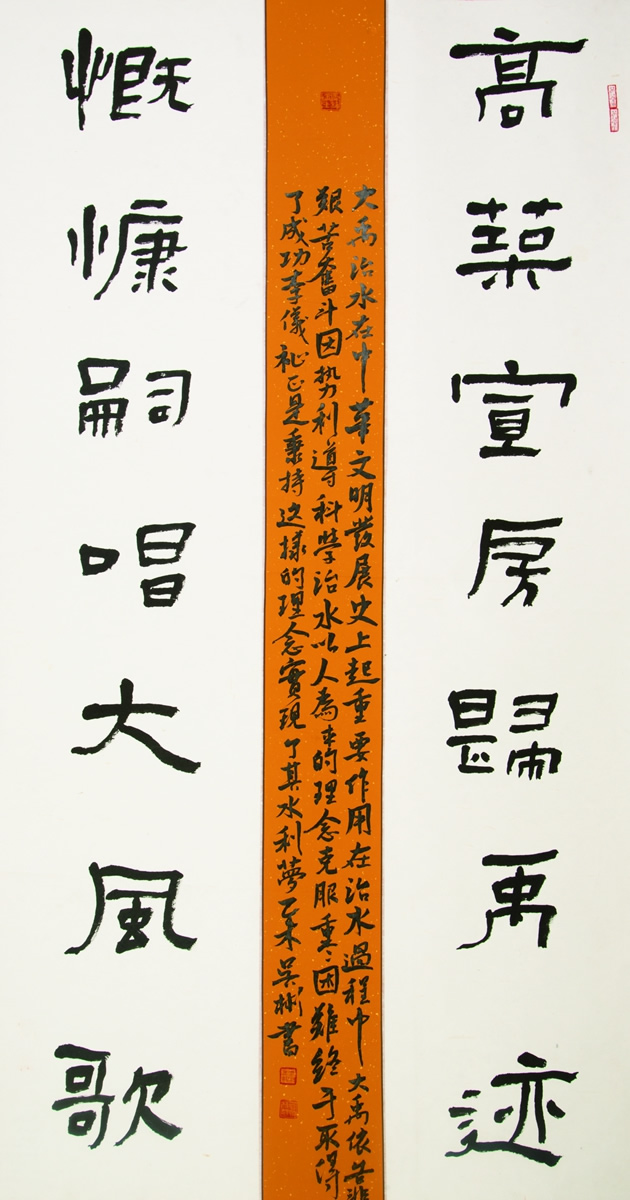 高築宣房歸禹迹
大禹治水在中華文明發展史上起重要作用在治水過程中大禹依靠
艱苦奮斗因势利導科學治水以人為本的理念克服重〻困難終于取得
了成功李儀祉正是秉持这樣的理念實現了其水利夢乙未吳彬書
慨慷嗣唱大風歌